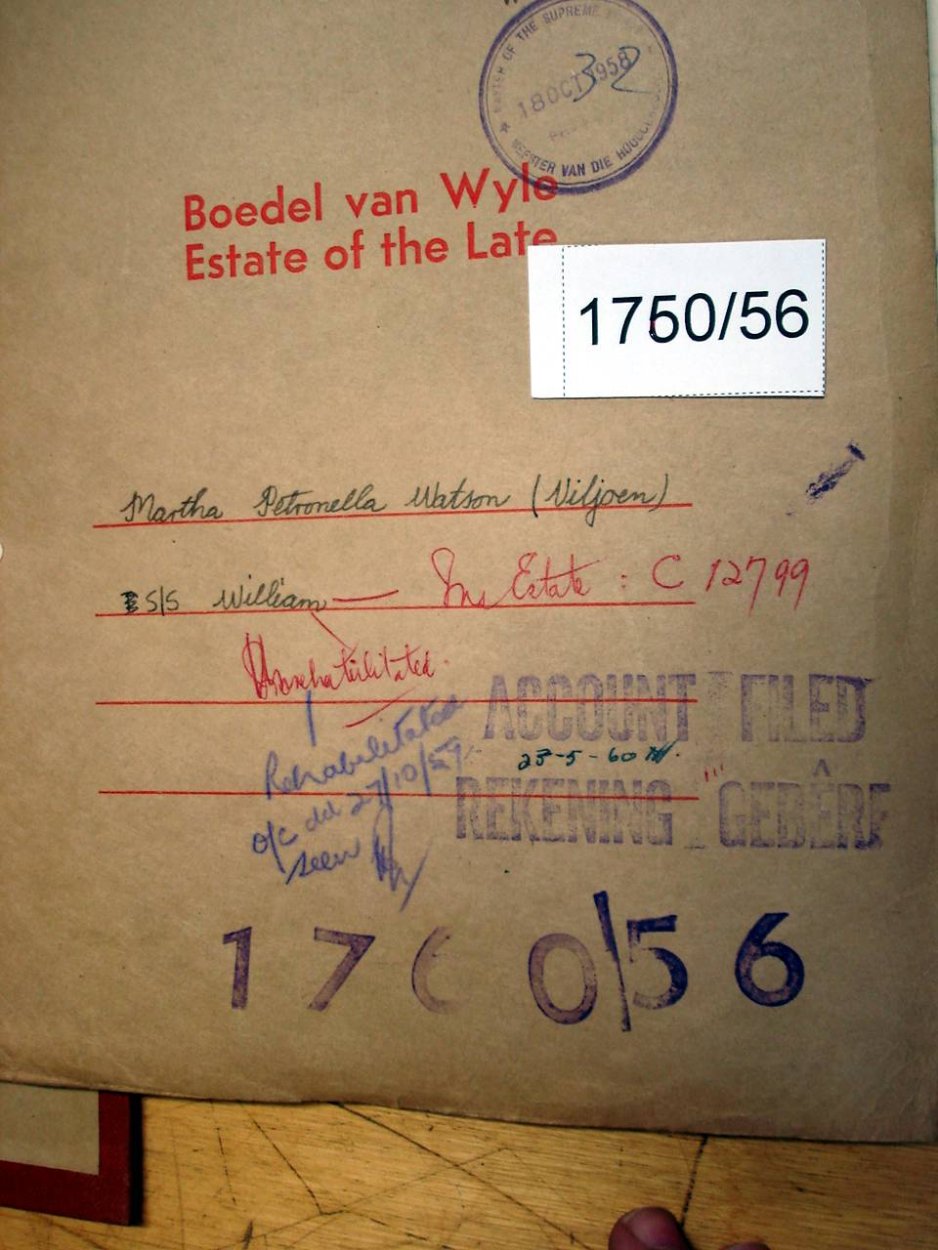 MASTER OF THE SUPREME
18 OCT 1958
32
MEESTER VAN DIE HOOGGE
Boedel van Wyle
Estate of the Late
1750/56
Martha Petronella Watson (Viljoen)
S/S William — Ins Estate : C 12799
Unrehabilitated
Rehabilitated
o/c dd 27/10/59
seen
ACCOUNT FILED
23-5-60
REKENING GEDÊRF
17 0/56